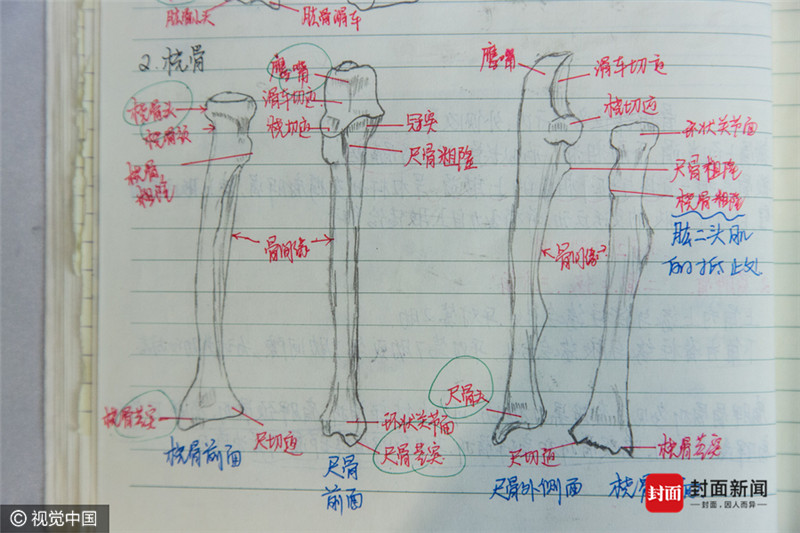 肱骨小头
肱骨滑车
2. 桡骨
桡骨头
桡骨颈
桡骨
粗隆
鹰嘴
滑车切迹
桡切迹
冠突
尺骨粗隆
骨间缘
桡骨茎突
尺切迹
桡骨前面
环状关节面
尺骨茎突
尺骨
前面
鹰嘴
滑车切迹
桡切迹
环状关节面
尺骨粗隆
桡骨粗隆
肱二头肌
的抵止处
骨间缘
尺骨头
尺切迹
桡骨茎突
尺骨外侧面
桡骨
面
封面
封面新闻
封面，因人而异
© 视觉中国